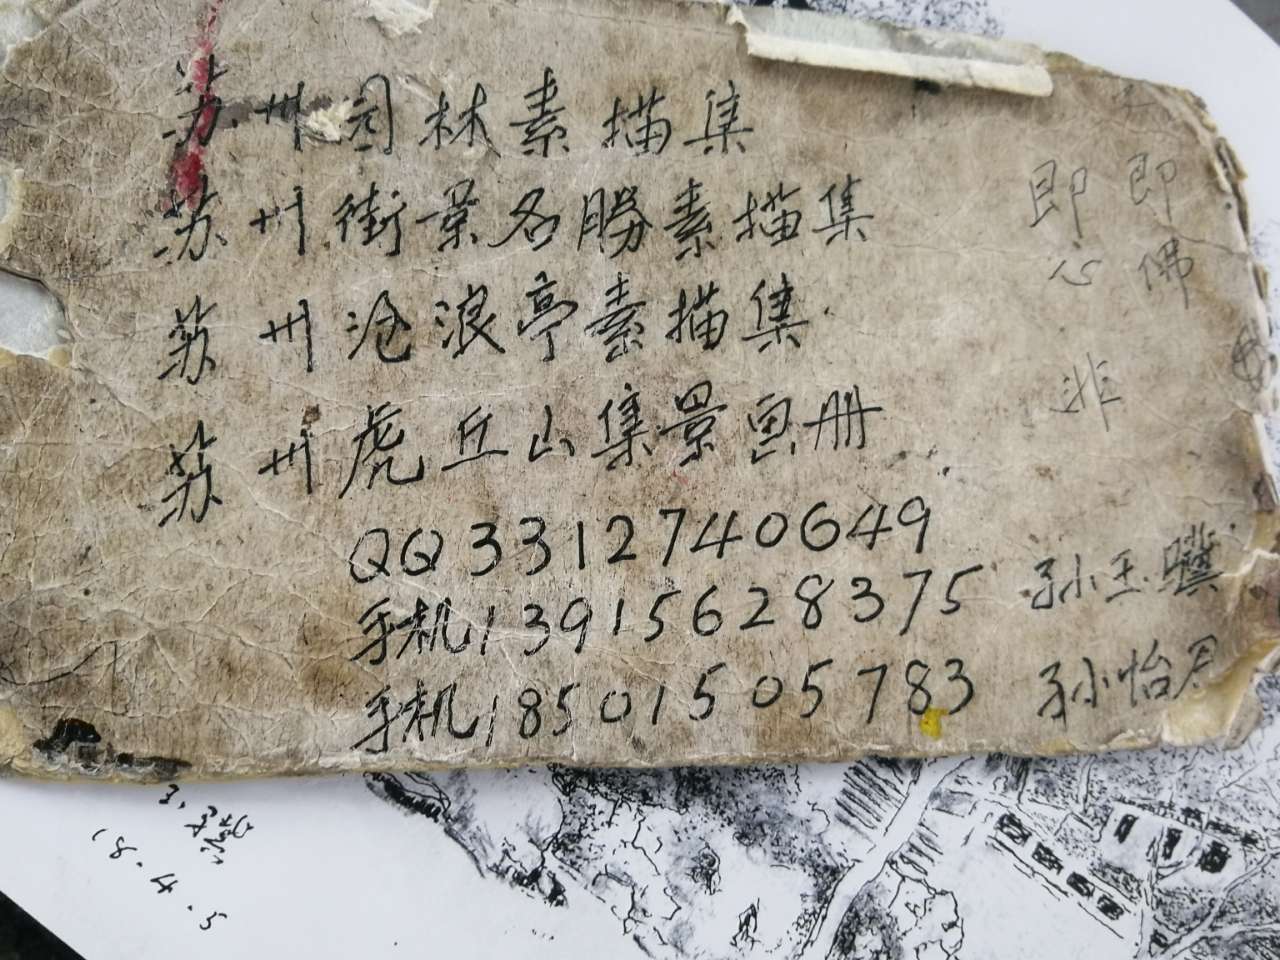 苏州园林素描集
苏州街景名勝素描集
苏州沧浪亭素描集
苏州虎丘山集景画册
QQ3312740649
手机13915628375 孙玉骥
手机18501505783 孙怡君
即心 非
即佛
18.4.5